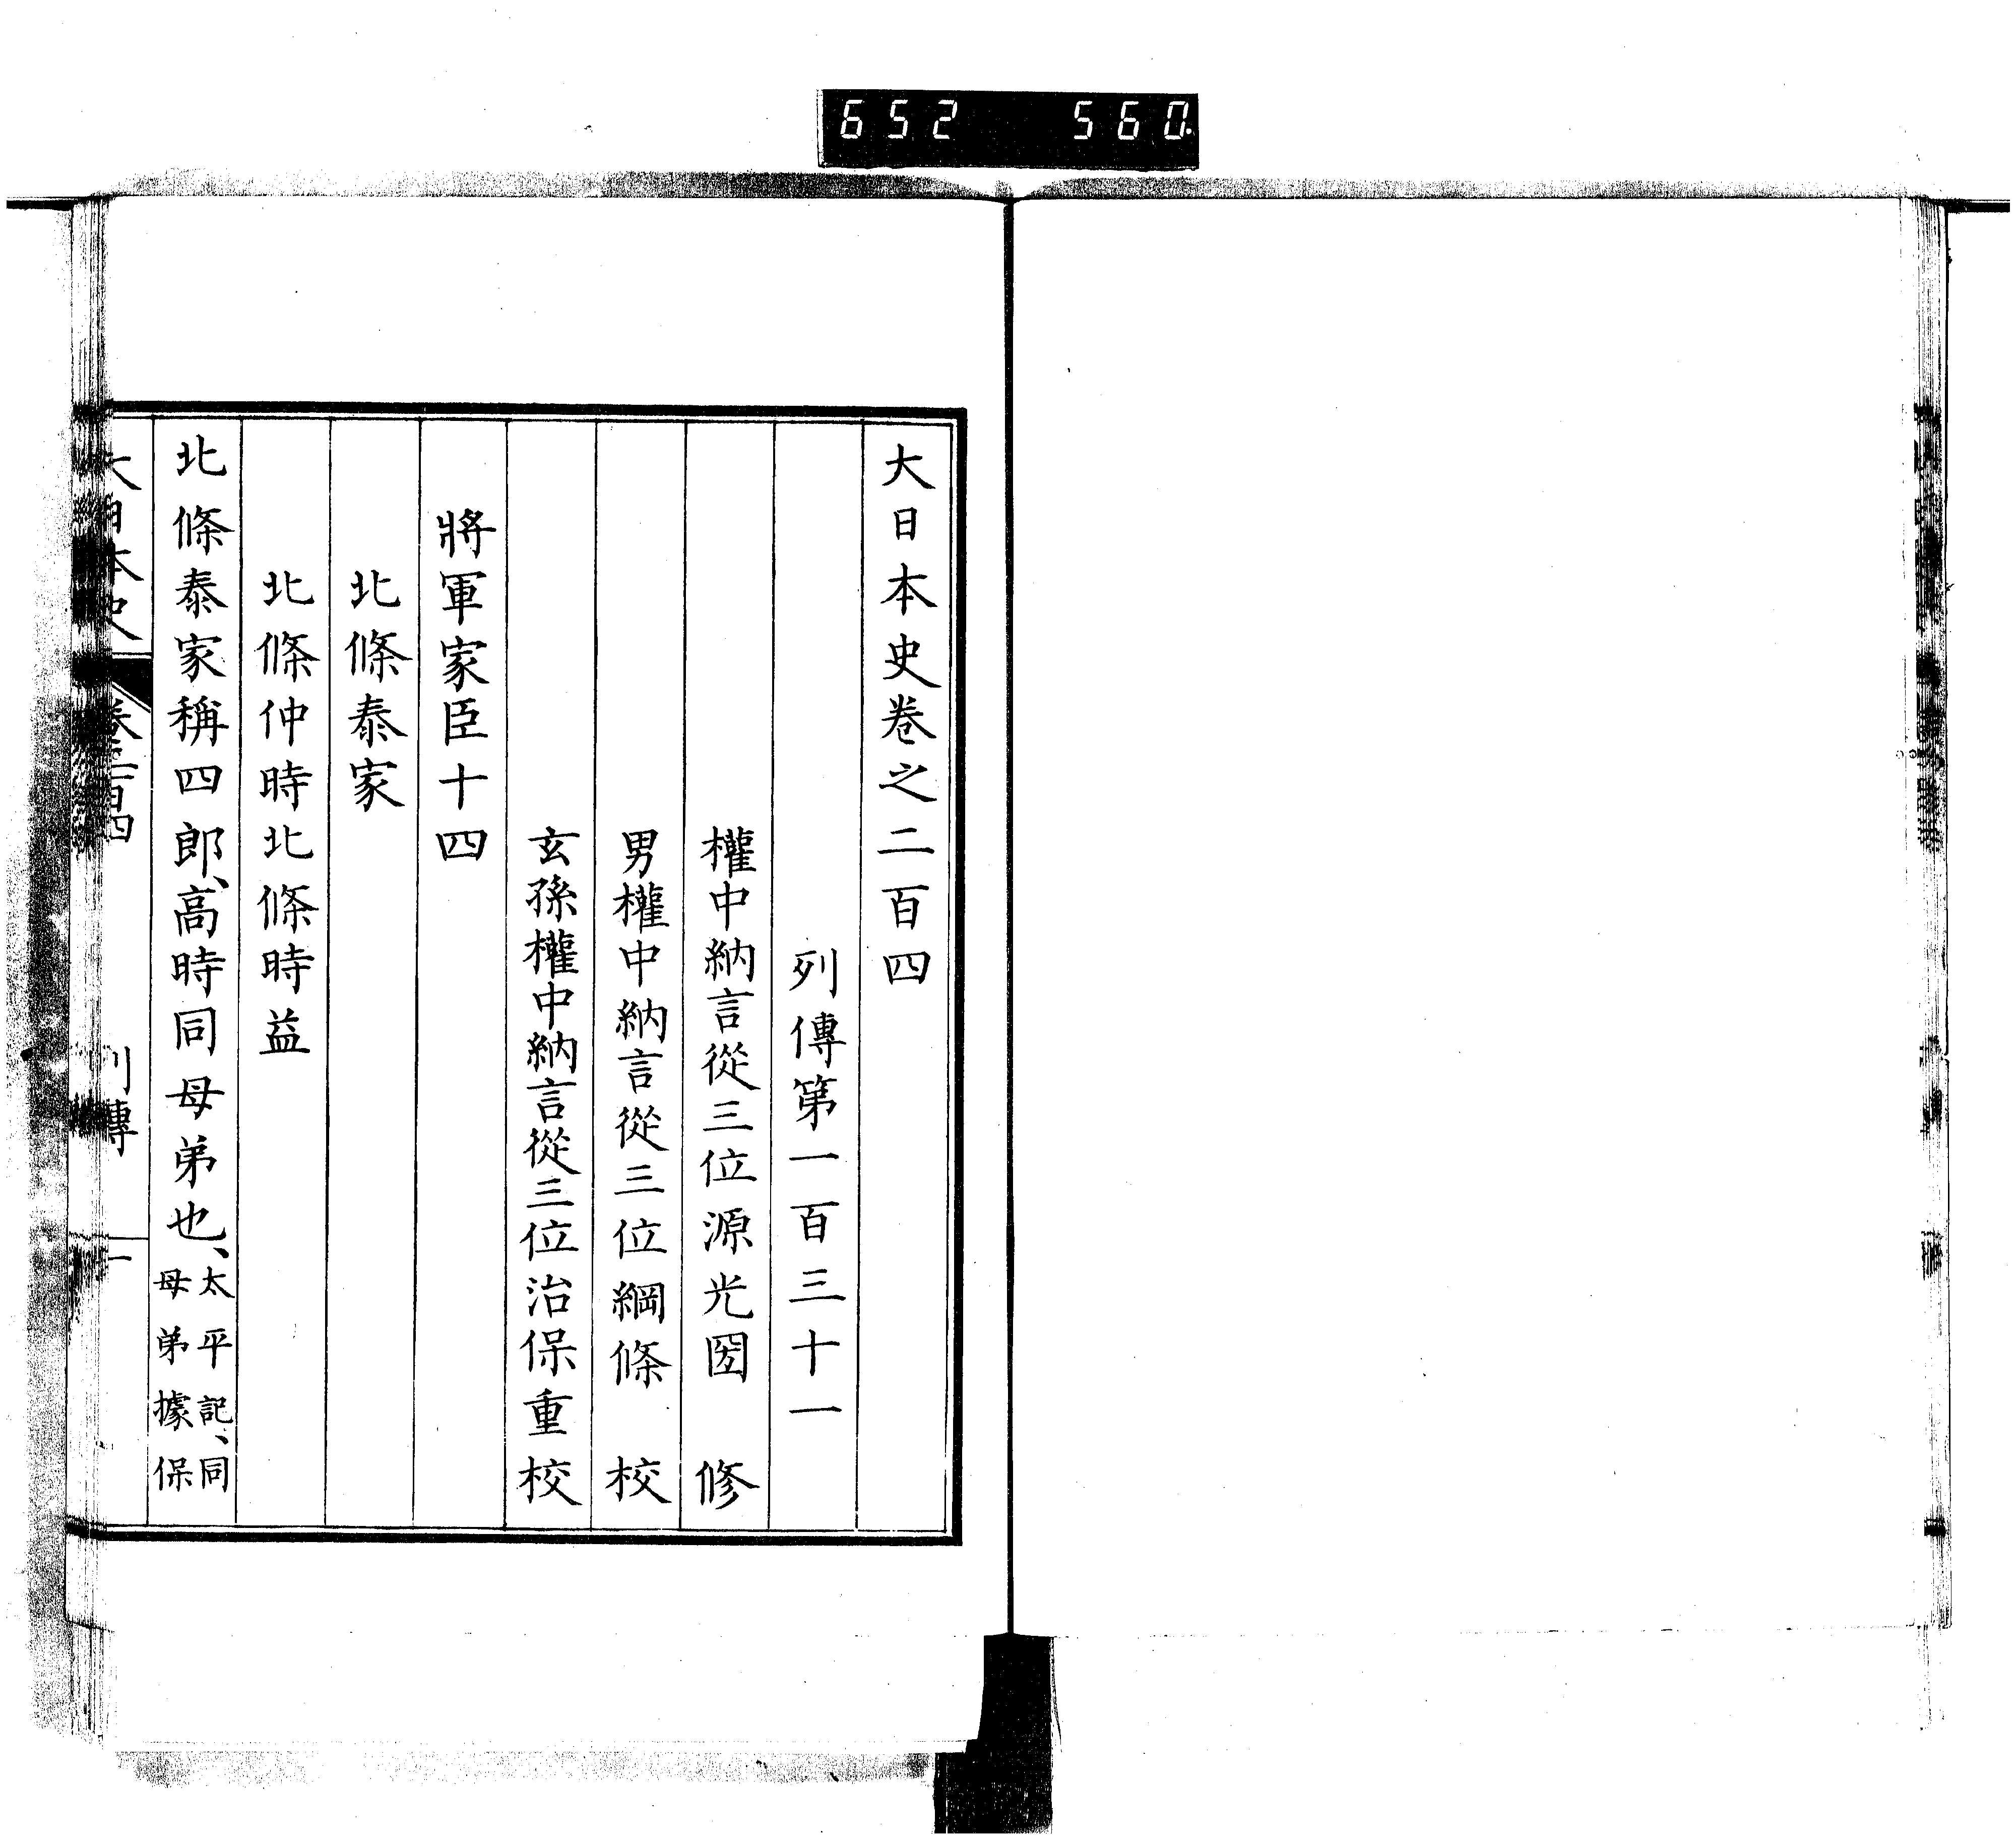 652 560
大日本史卷之二百四
列傳第一百三十一
權中納言從三位源光圀 修
男權中納言從三位綱條 校
玄孫權中納言從三位治保重校
將軍家臣十四
北條泰家
北條仲時北條時益
北條泰家稱四郎、高時同母弟也、太平記、同
母弟據保
大日本史 卷二百四 列傳 一